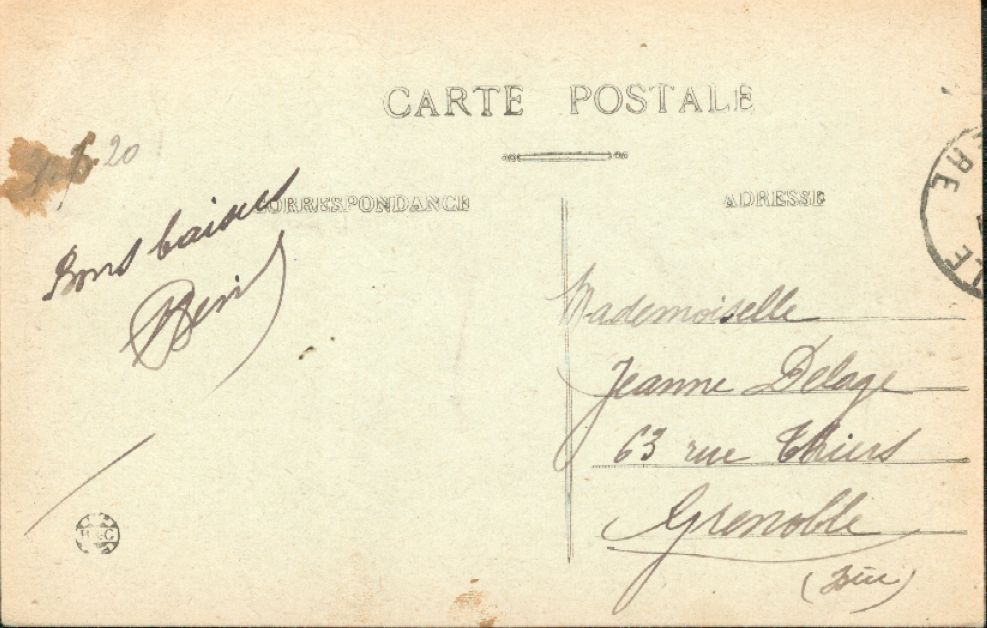 CARTE POSTALE
CORRESPONDANCE
ADRESSE
20
Bons baisers
Mademoiselle
Jeanne Delage
63 rue Thiers
Grenoble
(Isère)